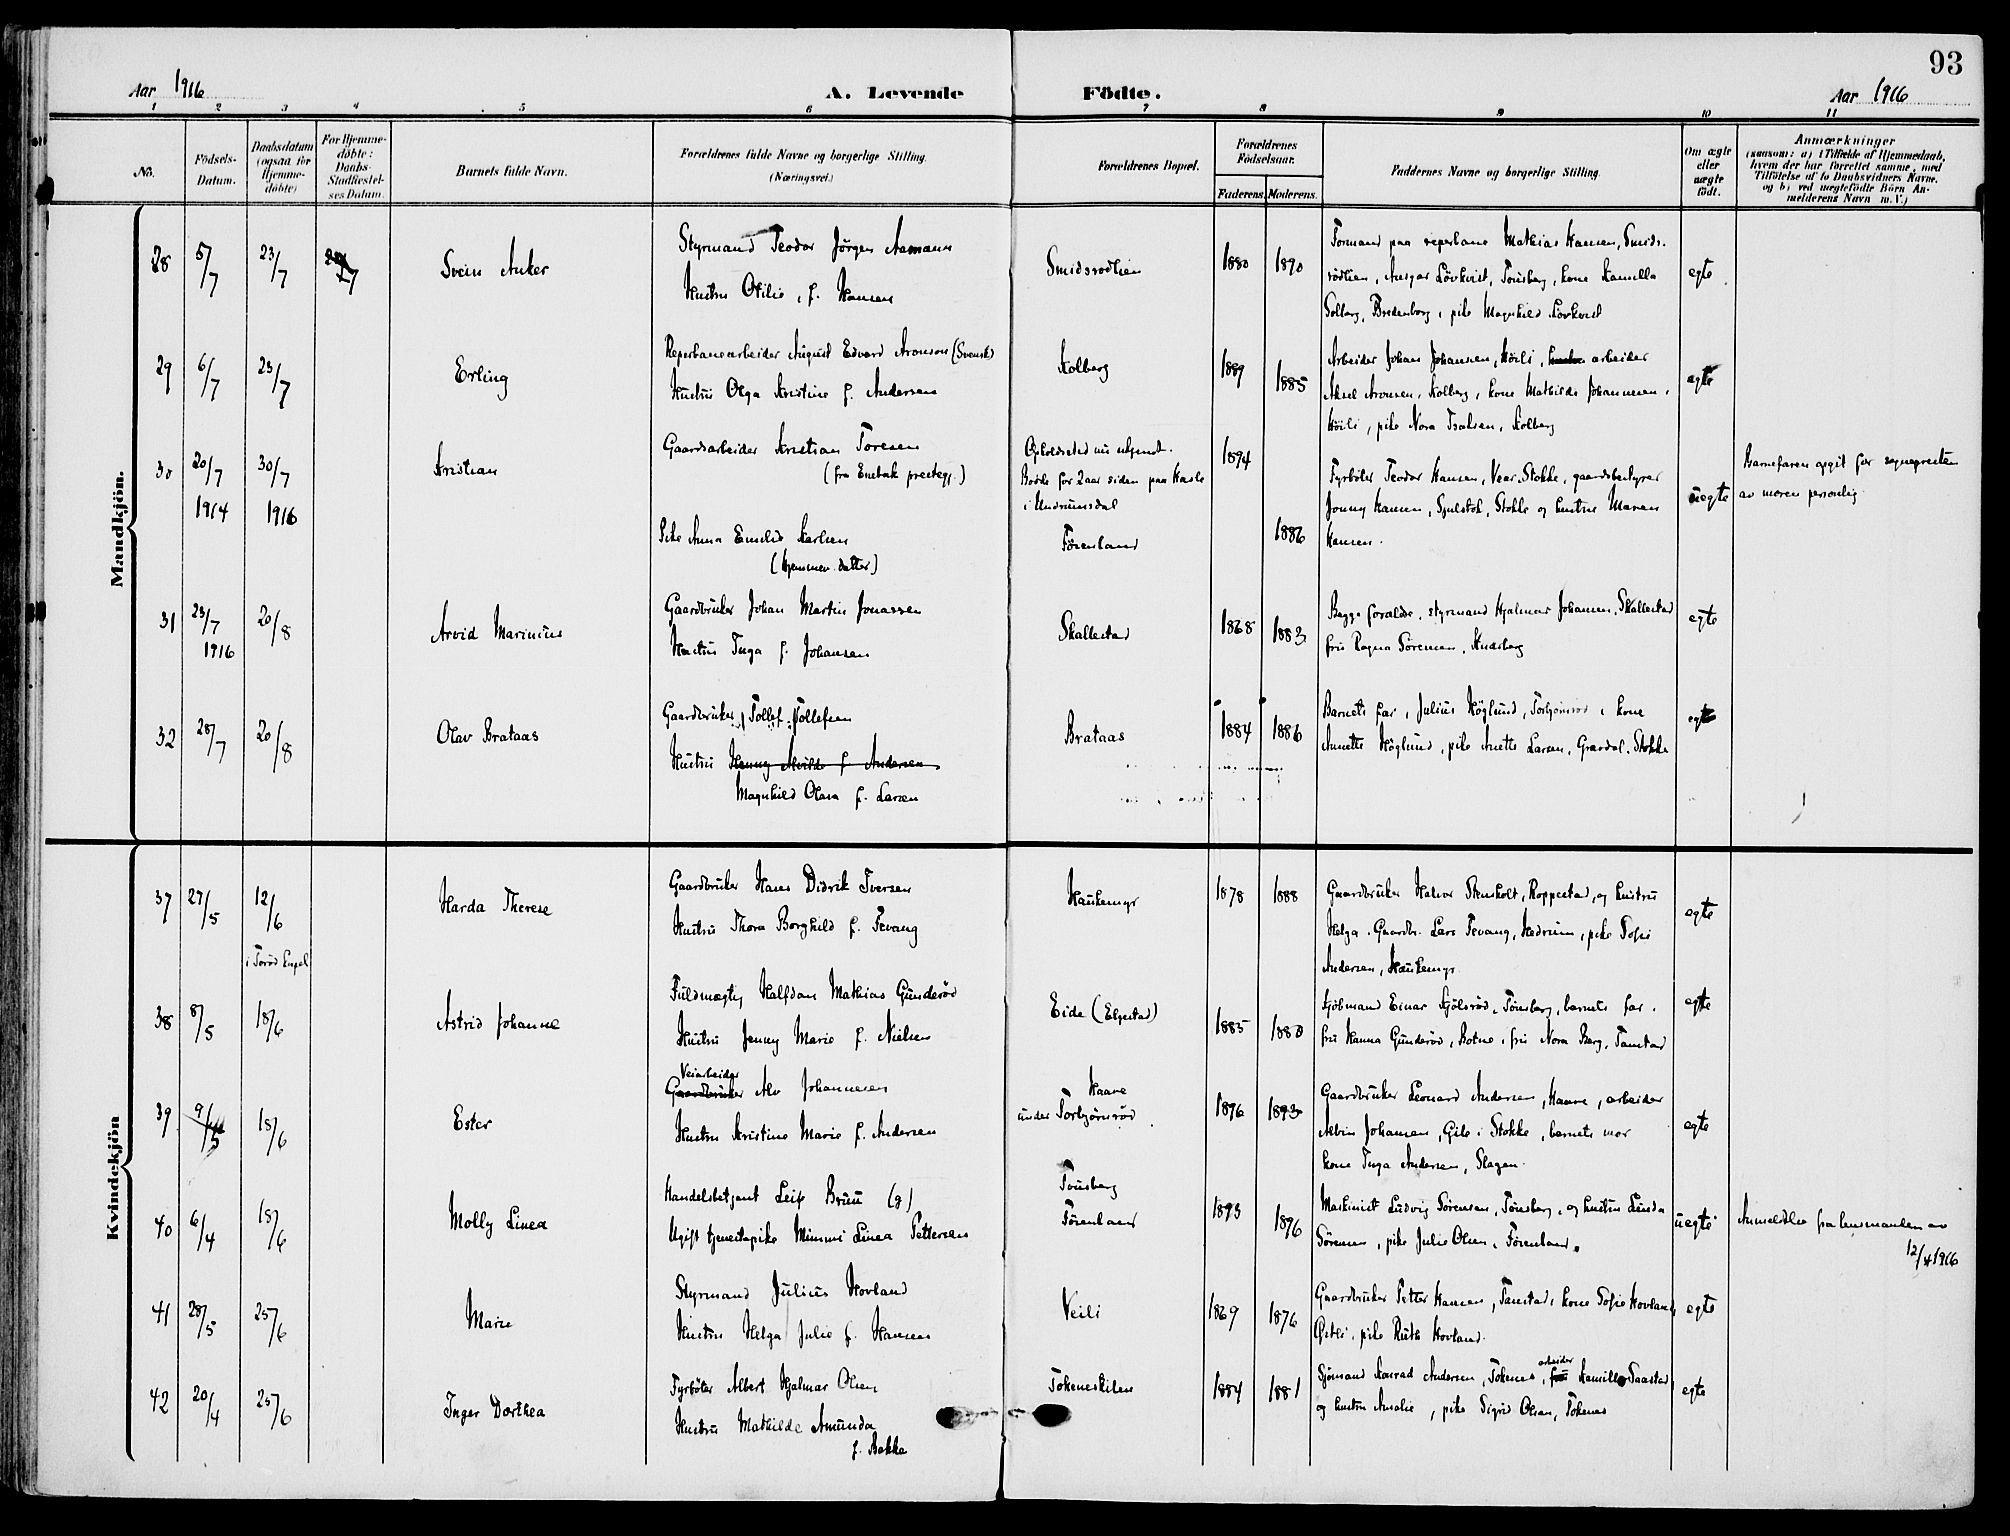 93
Aar 1916
A. Levende
Födte.
Aar 1916
1 2 3 4 5 6 7 8 9 10 11
No.
Födsels-
Datum.
Daabsdatum
(ogsaa for
Hjemme-
döbte)
For Hjemme-
döbte:
Daabs-
Stadfæstel-
ses Datum.
Barnets fulde Navn.
Forældrenes fulde Navne og borgerlige Stilling.
(Næringsvei.)
Forældrenes Bopæl.
Forældrenes
Födselsaar.
Faderens.
Moderens.
Faddernes Navne og borgerlige Stilling.
Om ægte
eller
uægte
födt.
Anmærkninger
(saasom: a) i Tilfælde af Hjemmedaab,
hvem der har forrettet samme, med
Tilföielse af to Daabsvidners Navne,
og b) ved uægtefödte Börn An-
melderens Navn m. V.)
Mandkjön.
28 5/7 23/7
Svein Anker
Styrmand Teodor Jörgen Aamann
Hustru Otilie, f. Hansen
Smidsrødlien
1880 1890
Formand paa reperbane Mathias Hansen, Smids-
rødlien, Ansgar Lövkvist, Tønsberg, kone Kamilla
Solberg, Bredenborg, pike Magnhild Lövkvist
egte
29 6/7 23/7
Erling
Reperbanearbeider August Edvard Aronson (Svensk)
Hustru Olga Kristine f. Andersen
Kolberg
1889 1885
Arbeider Johan Johansen, Höili, arbeider
Aksel Aronsen, Kolberg, kone Mathilde Johannesen,
Höili, pike Nora Isaksen, Kolberg
egte
30 20/7 1914 30/7 1916
Kristian
Gaardsarbeider Kristian Toresen
(fra Enebak prestegj.)
Pike Anna Emelie Karlsen
(Hjemmev. datter)
Opholdssted nu ukjendt.
Bodde for 2 aar siden paa Hasle
i Undrumsdal
Føienland
1894 1886
Fyrböter Teodor Hansen, Vear, Stokke, gaardsbestyrer
Jonny Hansen, Gjelstok, Stokke og hustru Maren
Hansen.
uegte
Barnefaren opgit for sognepresten
av moren personlig
31 23/7 1916 20/8
Arvid Marinius
Gaardbruker Johan Martin Jonassen
Hustru Inga f. Johansen
Skallestad
1868 1883
Begge foraldre, styrmand Hjalmar Johansen, Skallestad
fru Ragna Sörensen, Husöberg
egte
32 28/7 20/8
Olav Brataas
Gaardbruker Tollef Tollefsen
Hustru Henny Alvilde f. Andersen
Magnhild Olava f. Larsen
Brataas
1884 1886
Barnets far, Julius Höglund, Torbjörnröd, kone
Annette Höglund, pike Anette Larsen, Gravdal, Stokke
egte
Kvindekjön
37 27/5 12/6
i Torød kapel
Harda Therese
Gaardbruker Hans Didrik Iversen
Hustru Thora Borghild f. Fevang
Haukemyr
1878 1888
Gaardbruker Halvor Stensholt, Roppestad, og hustru
Helga. Gaardbr. Lars Fevang, Hedrum, pike Sofie
Andersen, Haukemyr.
egte
38 8/5 18/6
Astrid Johanne
Fuldmægtig Halfdan Mathias Gunderød
Hustru Jenny Marie f. Nielsen
Eide (Elgestad)
1885 1880
Kjöbmand Einar Kjölsröd, Tønsberg, barnets far,
fru Hanna Gunderød, Botne, fru Nora Berg, Tamstad
egte
39 9/5 18/6
Ester
Veiarbeider
Gaardbruker Alv Johannesen
Hustru Kristine Marie f. Andersen
Haave
under Torbjörnröd
1896 1893
Gaardbruker Leonard Andersen, Haave, arbeider
Albin Johansen, Gile i Stokke, barnets mor
kone Inga Andersen, Slagen.
egte
40 6/4 18/6
Molly Linea
Handelsbetjent Leif Bruu (g)
Ugift tjenestepike Mimmi Linea Pettersen
Tønsberg
Føienland
1893 1896
Maskinist Ludvig Sörensen, Tønsberg, og hustru Linda
Sörensen, pike Julie Olsen, Føienland.
uegte
Anmeldelse fra lensmanden av
12/4 1916
41 28/5 25/6
Marie
Styrmand Julius Hovland
Hustru Helga Julie f. Hansen
Veili
1869 1876
Gaardbruker Petter Hansen, Tamstad, kone Sofie Hovland,
Østli, pike Ruth Hovland.
egte
42 20/4 25/6
Inger Dorthea
Fyrböter Albert Hjalmar Olsen
Hustru Mathilde Amunda
f. Bakke
Tokeneskilen
1884 1881
Sjömand Konrad Andersen, Tokenes, arbeider Kamille Saastad
og hustru Amalie, pike Sigrid Olsen, Tokenes
egte